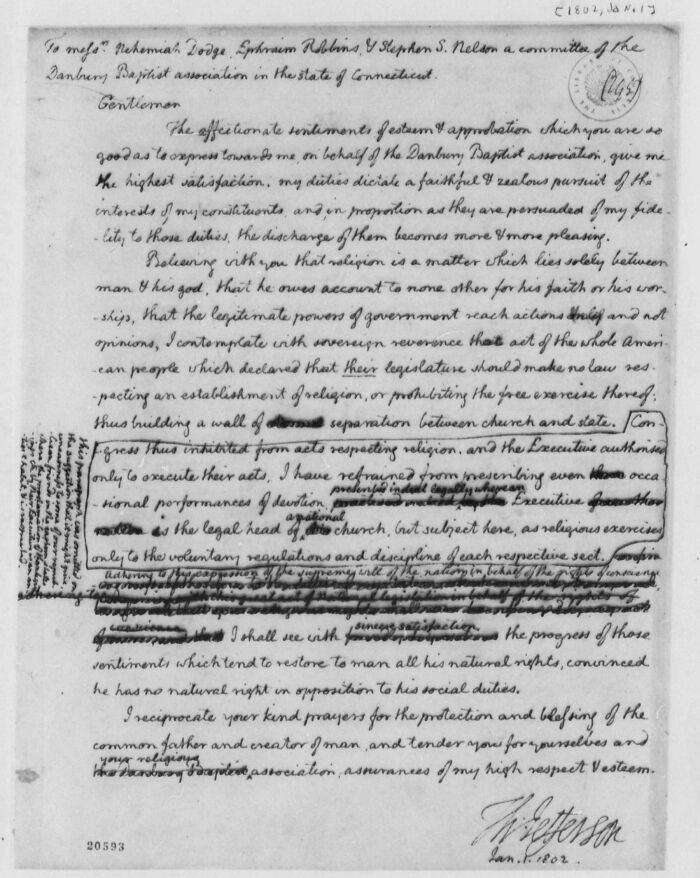 [1802, Jan. 1]
To messrs. Nehemiah Dodge, Ephraim Robbins, & Stephen S. Nelson a committee of the
Danbury Baptist association in the state of Connecticut.
Gentlemen
The affectionate sentiments of esteem & approbation which you are so
good as to express towards me, on behalf of the Danbury Baptist association, give me
the highest satisfaction. my duties dictate a faithful & zealous pursuit of the
interests of my constituents, and, in proportion as they are persuaded of my fide-
-lity to those duties, the discharge of them becomes more & more pleasing.
Believing with you that religion is a matter which lies solely between
man & his god, that he owes account to none other for his faith or his wor-
-ship, that the legitimate powers of government reach actions only and not
opinions, I contemplate with sovereign reverence that act of the whole Ameri-
-can people which declared that their legislature should make no law res-
-pecting an establishment of religion, or prohibiting the free exercise thereof;
thus building a wall of separation between church and state. [Con-
-gress thus inhibited from acts respecting religion, and the Executive authorised
only to execute their acts, I have refrained from prescribing even occa-
prescribed indeed legally where an
-sional performances of devotion, Executive
a national
is the legal head of church, but subject here, as religious exercises
only to the voluntary regulations and discipline of each respective sect.
Adhering to this expression of the supreme will of the nation in behalf of the rights of conscience
sincere satisfaction
I shall see with the progress of those
sentiments which tend to restore to man all his natural rights, convinced
he has no natural right in opposition to his social duties.
I reciprocate your kind prayers for the protection and blessing of the
common father and creator of man, and tender you for yourselves and
your religious
the Danbury Baptist association, assurances of my high respect & esteem.
Th: Jefferson
Jan. 1. 1802.
20593